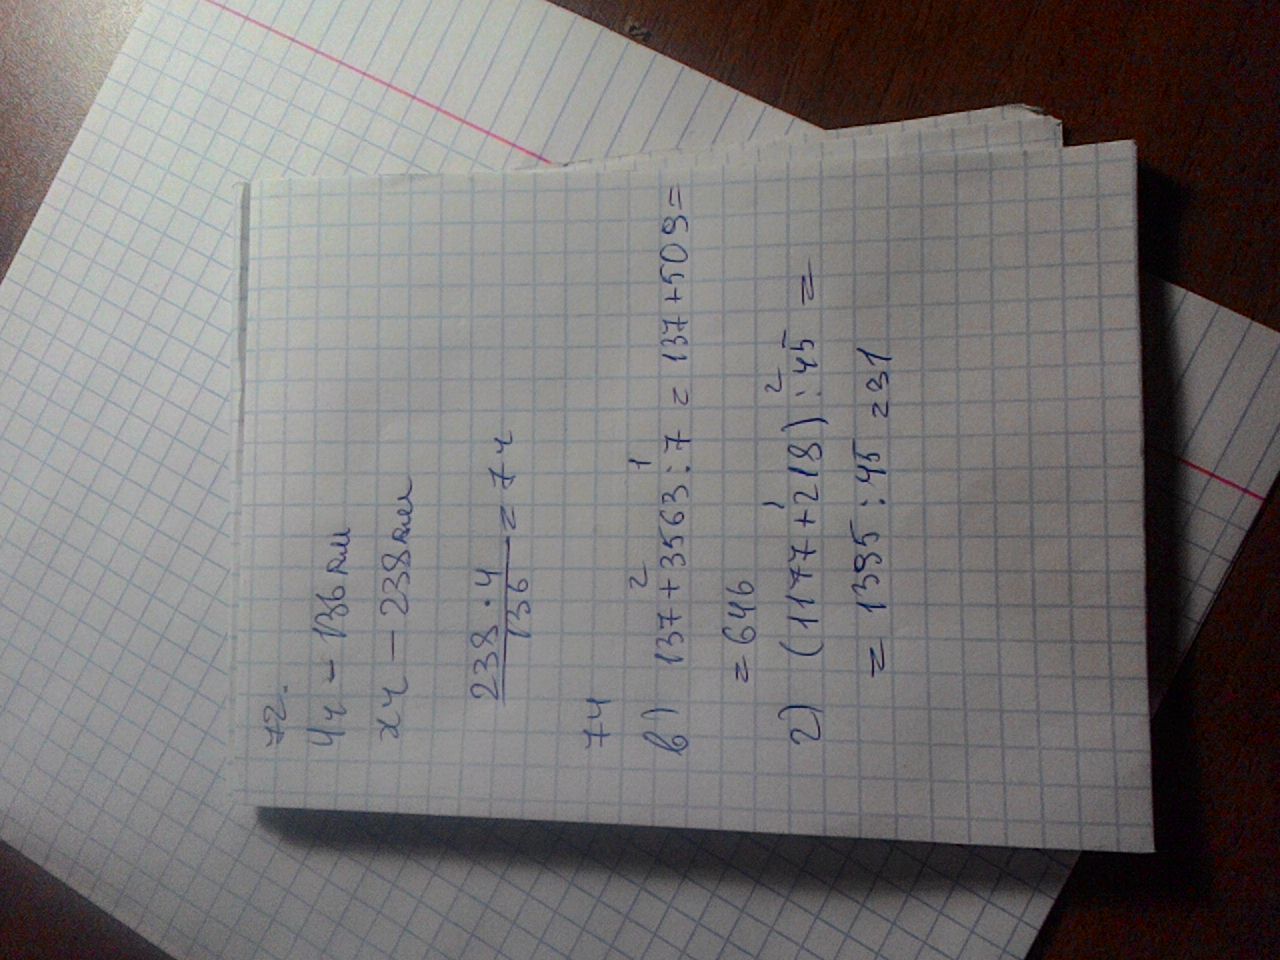 72.
4ч – 136 км
xч – 238 км
238 · 4
136
= 7 ч
74
2 1
в) 137 + 3563 : 7 = 137 + 509 =
= 646
1 2
г) (1177 + 218) : 45 =
= 1395 : 45 = 31